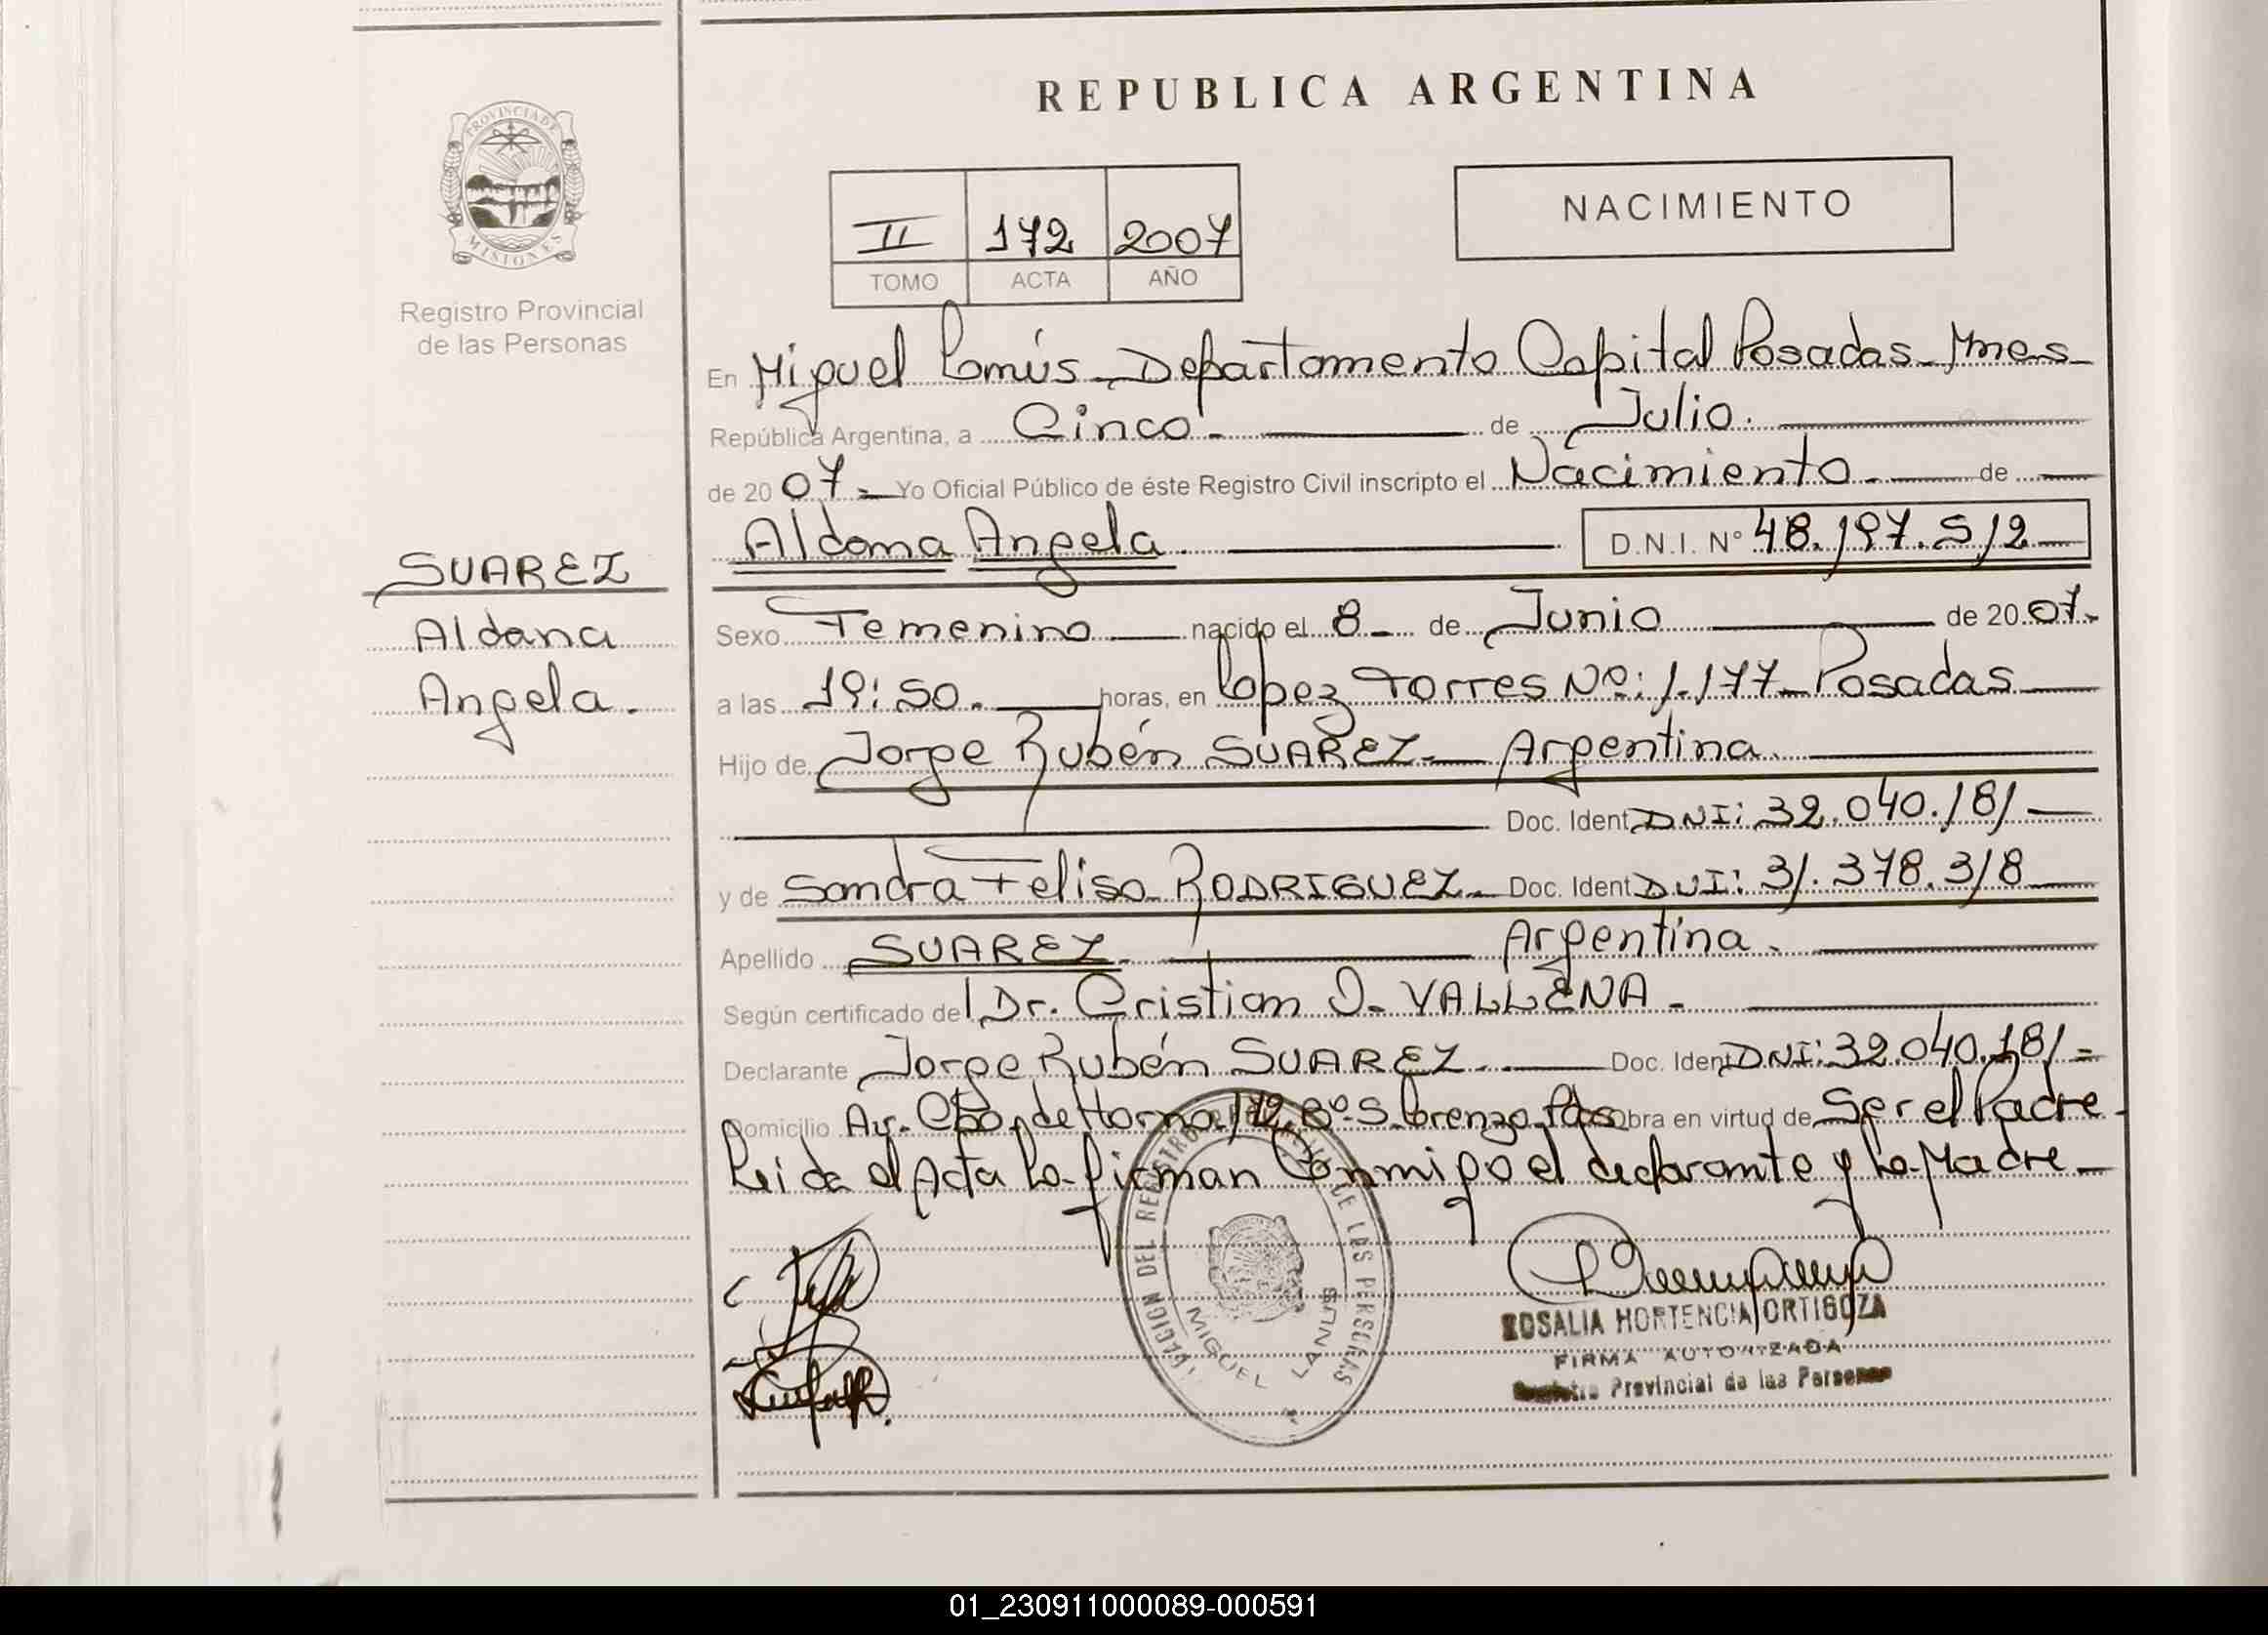 REPUBLICA ARGENTINA
PROVINCIA DE
MISIONES
Registro Provincial
de las Personas
II 172 2007
TOMO ACTA AÑO
NACIMIENTO
En Miguel Lanús - Departamento Capital Posadas - Mnes -
República Argentina, a Cinco - de Julio.
de 2007 - Yo Oficial Público de éste Registro Civil inscripto el Nacimiento - de
Aldana Angela. D.N.I. Nº 48.197.512
SUAREZ
Aldana
Angela.
Sexo Femenino nacido el 8 - de Junio de 2007.
a las 19:50. horas, en Lopez Torres Nº: 1.177 - Posadas
Hijo de Jorge Rubén SUAREZ - Argentina.
Doc. Ident. DNI: 32.040.181
y de Sandra Felisa RODRIGUEZ - Doc. Ident DNI: 31.378.318
Apellido SUAREZ - Argentina.
Según certificado del Dr. Cristian D. VALLENA -
Declarante Jorge Rubén SUAREZ - Doc. Ident DNI: 32.040.181 =
Domicilio Av. Cbo. de Horno 172 Bº S. Lorenzo Pdas Obra en virtud de Ser el Padre -
Leida el Acta La firman Conmigo el declarante y La Madre -
DEL REGISTRO DE LAS PERSONAS
MIGUEL LANUS
ROSALIA HORTENCIA ORTIGOZA
FIRMA AUTORIZADA
Registro Provincial de las Personas
01_230911000089-000591